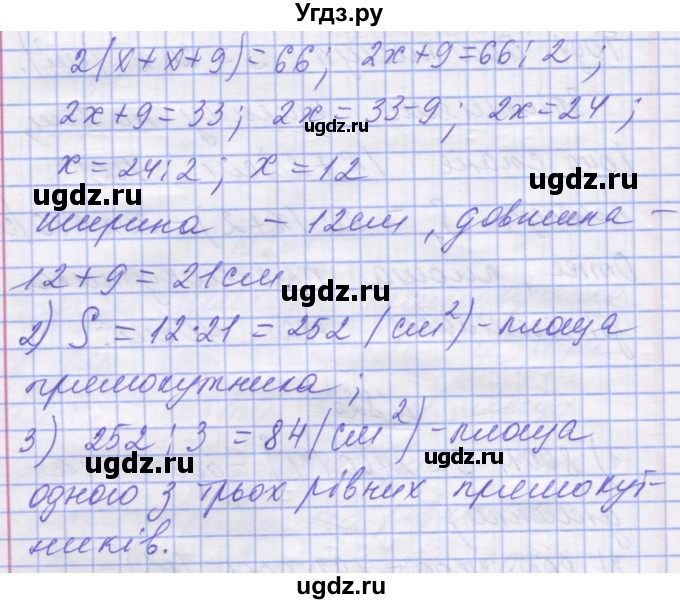 Угдз.ру
2(x+x+9)=66; 2x+9=66:2;
2x+9=33; 2x=33-9; 2x=24;
ugdz.ru
x=24:2; x=12
ugdz.ru ugdz.ru
ширина – 12см, довжина –
12+9=21см
ugdz.ru
2) S=12·21=252 (см²)-площа
ugdz.ru
прямокутника;
3) 252:3=84(см²)-площа
ugdz.ru ugdz.ru
одного з трьох рівних прямокут-
ників.
ugdz.ru